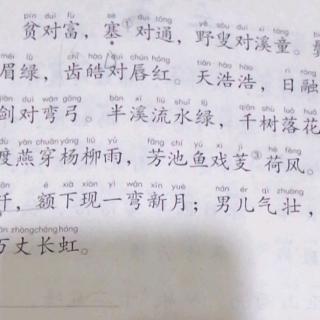 pín duì fù sè duì tōng yě sǒu duì xī tóng
贫对富，塞①对通，野叟对溪童。
méi lǜ chǐ hào duì chún hóng
眉绿，齿皓对唇红。天浩浩，日融
jiàn duì wān gōng bàn xī liú shuǐ lǜ qiān shù luò huā
剑对弯弓。半溪流水绿，千树落花
渡燕穿杨柳雨，芳池鱼戏芰③荷风。
é xià xiàn yì wān xīn yuè nán ér qì zhuàng
，额下现一弯新月；男儿气壮，
wàn zhàng cháng hóng
万丈长虹。